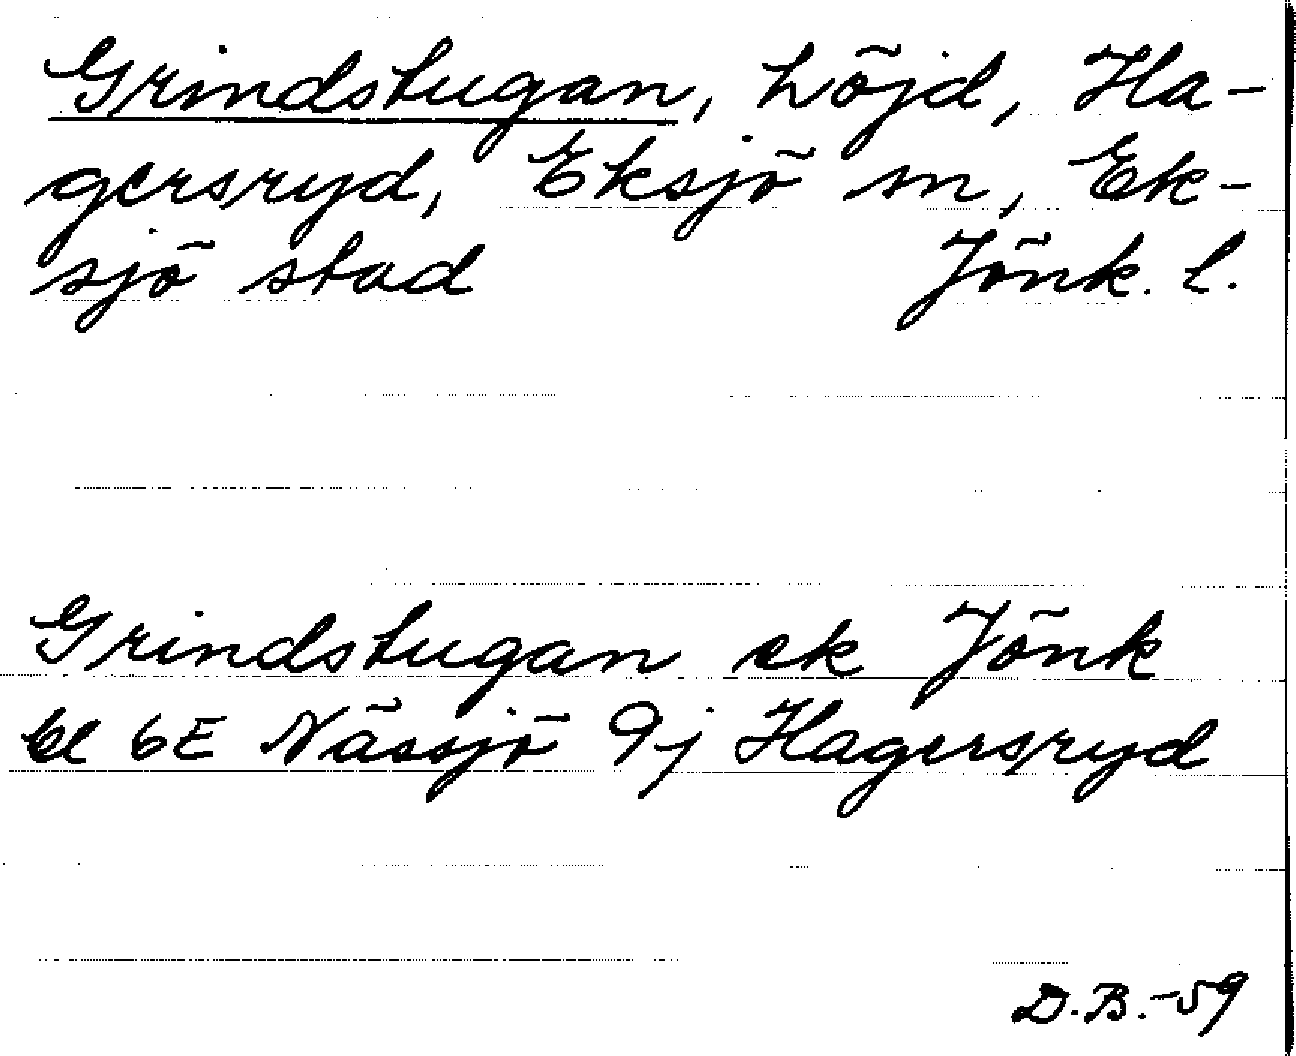 Grindstugan, höjd, Ha-
gersryd, Eksjö sn, Ek-
sjö stad Jönk. l.
Grindstugan ek Jönk
bl 6E Nässjö 9j Hagersryd
D.B.-59